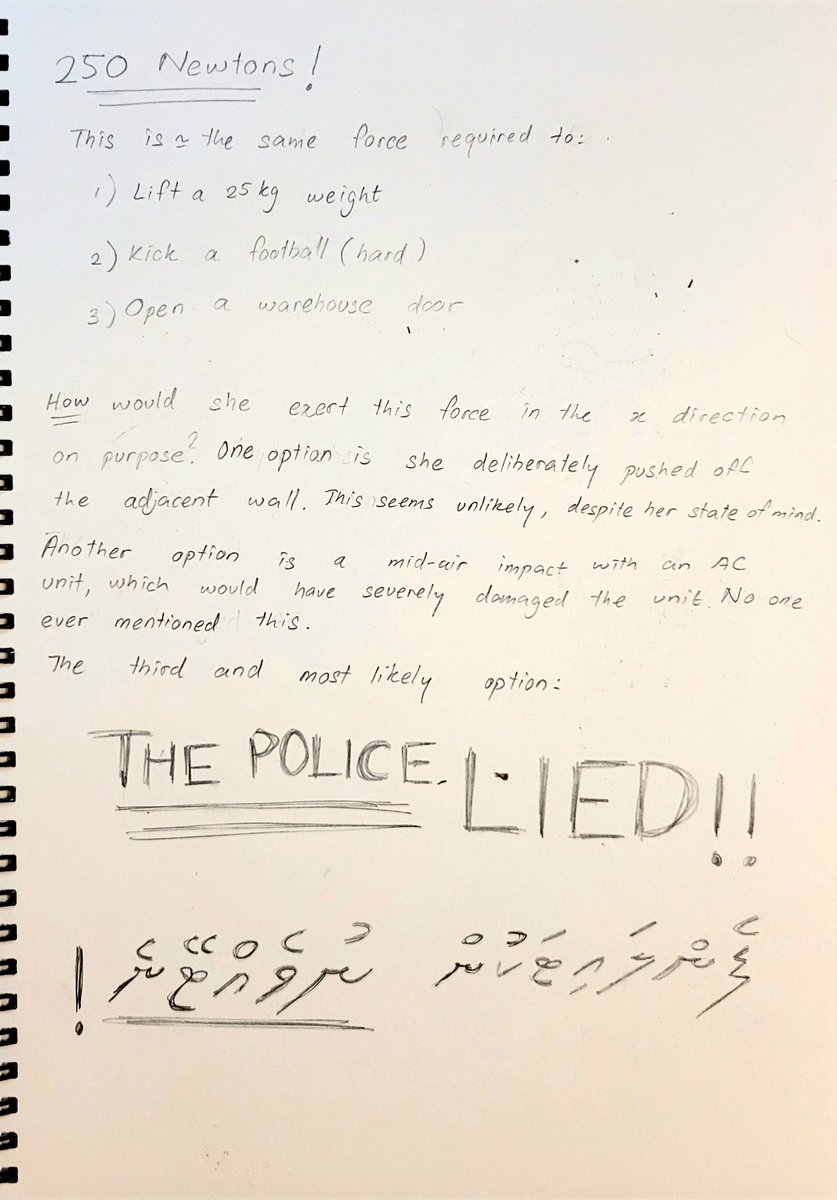 250 Newtons!
This is ≃ the same force required to:
1) Lift a 25kg weight
2) Kick a football (hard)
3) Open a warehouse door
How would she exert this force in the x direction
on purpose? One option is she deliberately pushed off
the adjacent wall. This seems unlikely, despite her state of mind.
Another option is a mid-air impact with an AC
unit, which would have severely damaged the unit. No one
ever mentioned this.
The third and most likely option:
THE POLICE LIED!!
ނުވެއްޓޭނެ!